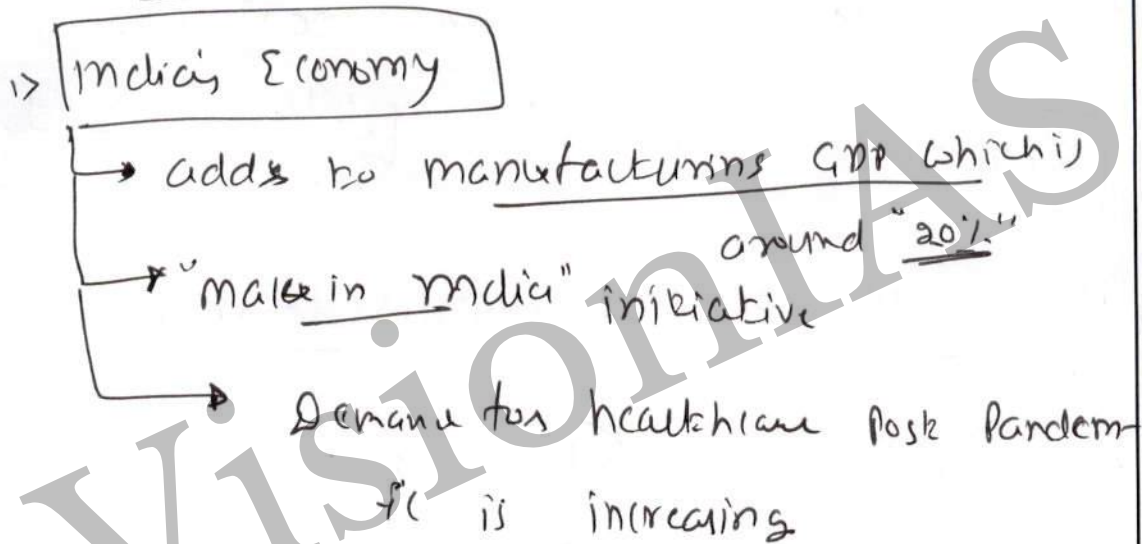 1> India's Economy
→ adds to manufacturing GDP which is
around "20%"
→ "make in India" initiative
→ Demand for healthcare Post Pandem-
ic is increasing
VisionIAS